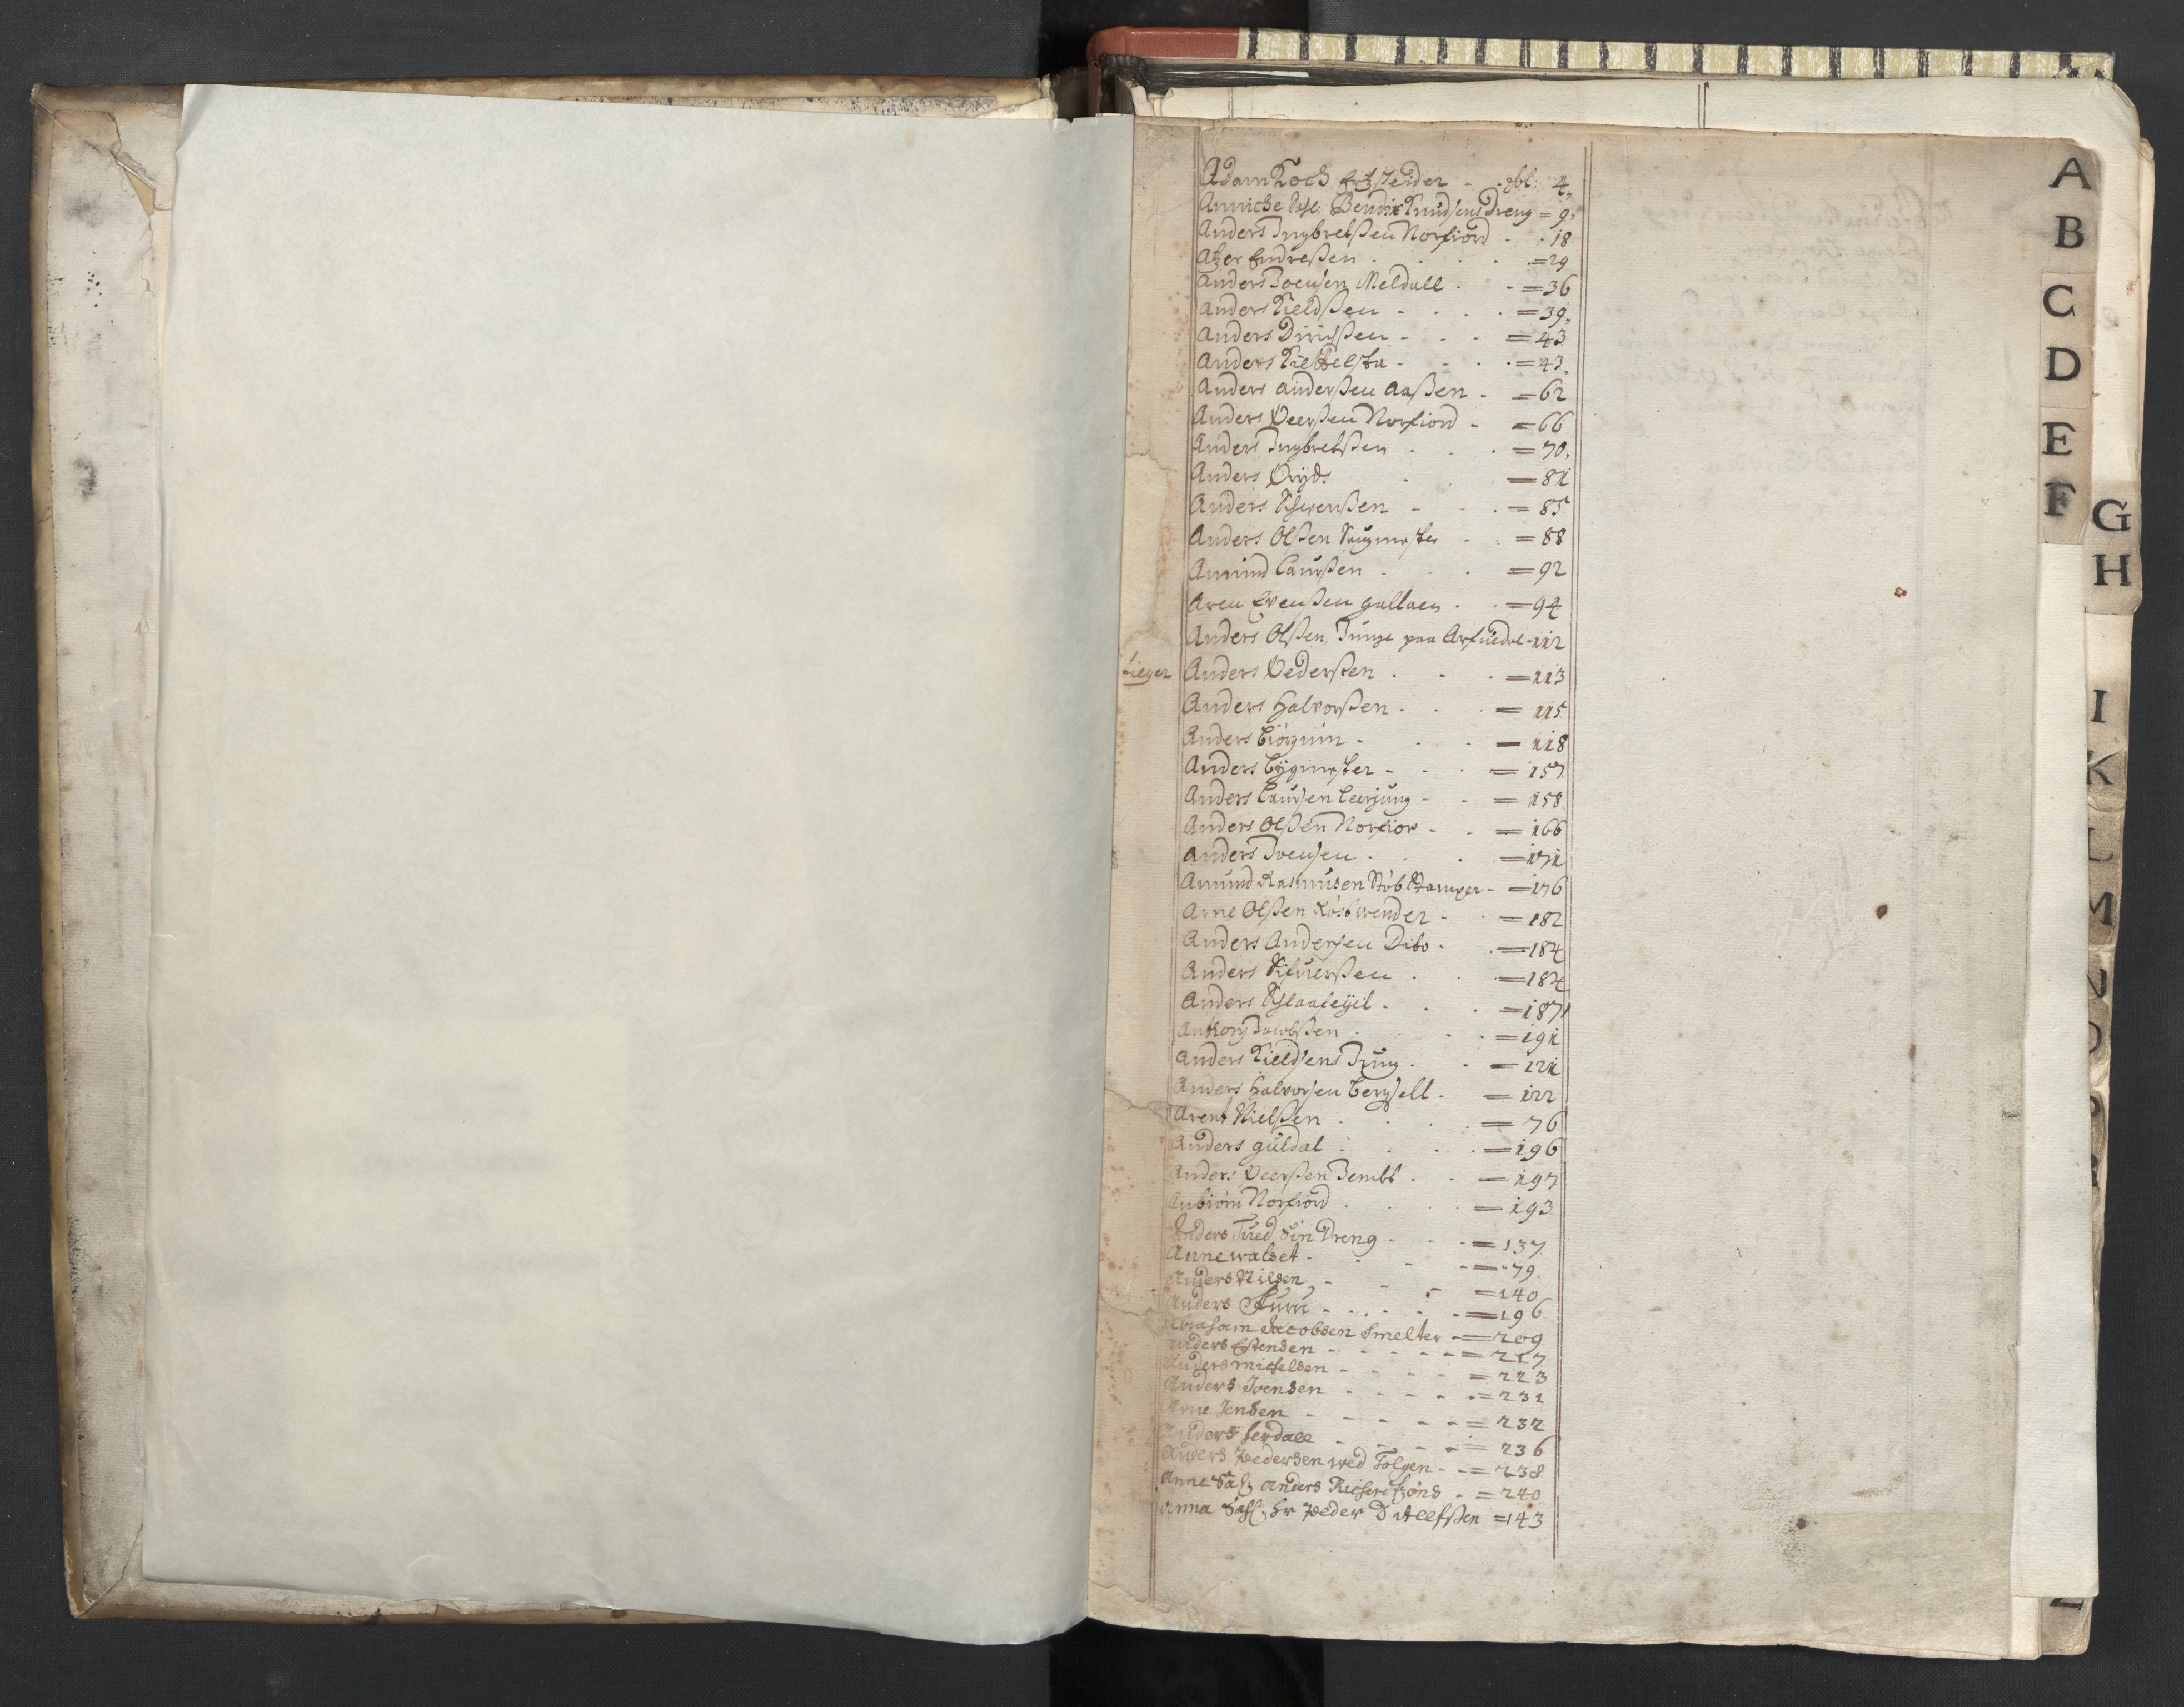 Adam Koch Ertzscheider - . fol: 4.
Anniche Sal: Bendix Knudsens Dreng = 9.
Anders Ingbretßen Norfiord - . 18
Atzer Endreßen . . . = 29
Anders Joensen Meldall . - = 36
Anders Kieldßen - . . . = 39.
Anders Dirichßen - . . = 43
Anders Kiettelsta - . . = 43.
Anders Anderßen Aaßen - = 62
Anders Peerßen Norfiord - = 66
Anders Ingbretßen . . . = 70.
Anders Gryds . . = 81
Anders Schwenßen - . . = 85
Anders Olßen Saugmester - . = 88
Amund Laurßen . . . = 92
Aren Evenßen Gullaen . . = 94
Anders Olßen Junge paa Arfuedal - 112
Anders Pederßen . - . = 113
Anders Halvorßen . . . = 115
Anders Biørnnin . . . = 118
Anders Bygmester - . . = 157
Anders Laursen Leerjung - . = 158
Anders Olßen Norfior - . = 166
Anders Ivensen . . = 171
Amund Rasmusen Støb Stamper - = 176
Arne Olßen Røstwender . . = 182
Anders Andersen Dito . . = 184
Anders Siluerßen . . = 184
Anders . . . = 187
Anthony Jacobßen . . = 191
Anders Kieldsens Jung . . = 121
Anders Halvorsen Bergsell . = 122
Arent Nielßen . . . = 76
Anders Guldal . . . = 196
Anders Peerßen Jembt . . = 197
Anbiørn Norfiord . . . = 193
Anders Tued Sin Dreng - . . = 137
Anne walset . . . - = 79
Anders Nilsen - - - = 140
Anders Furu - . . . - = 196
Abraham Jacobsen Smelter - = 209
Anders Estensen - - - - = 217
Anders Michelsen - - - - = 223
Anders Joensen - - - - = 231
Arne Jensen - - - - - = 232
Anders Herdall - - - - = 236
Anders Pedersen wed Tolgen - - = 238
Anne Sal: Anders Richertzøns - = 240
Anna Sahl: Hr Peder Ditlefßen = 143
A
B
C
D
E
F
G
H
I
K
L
M
N